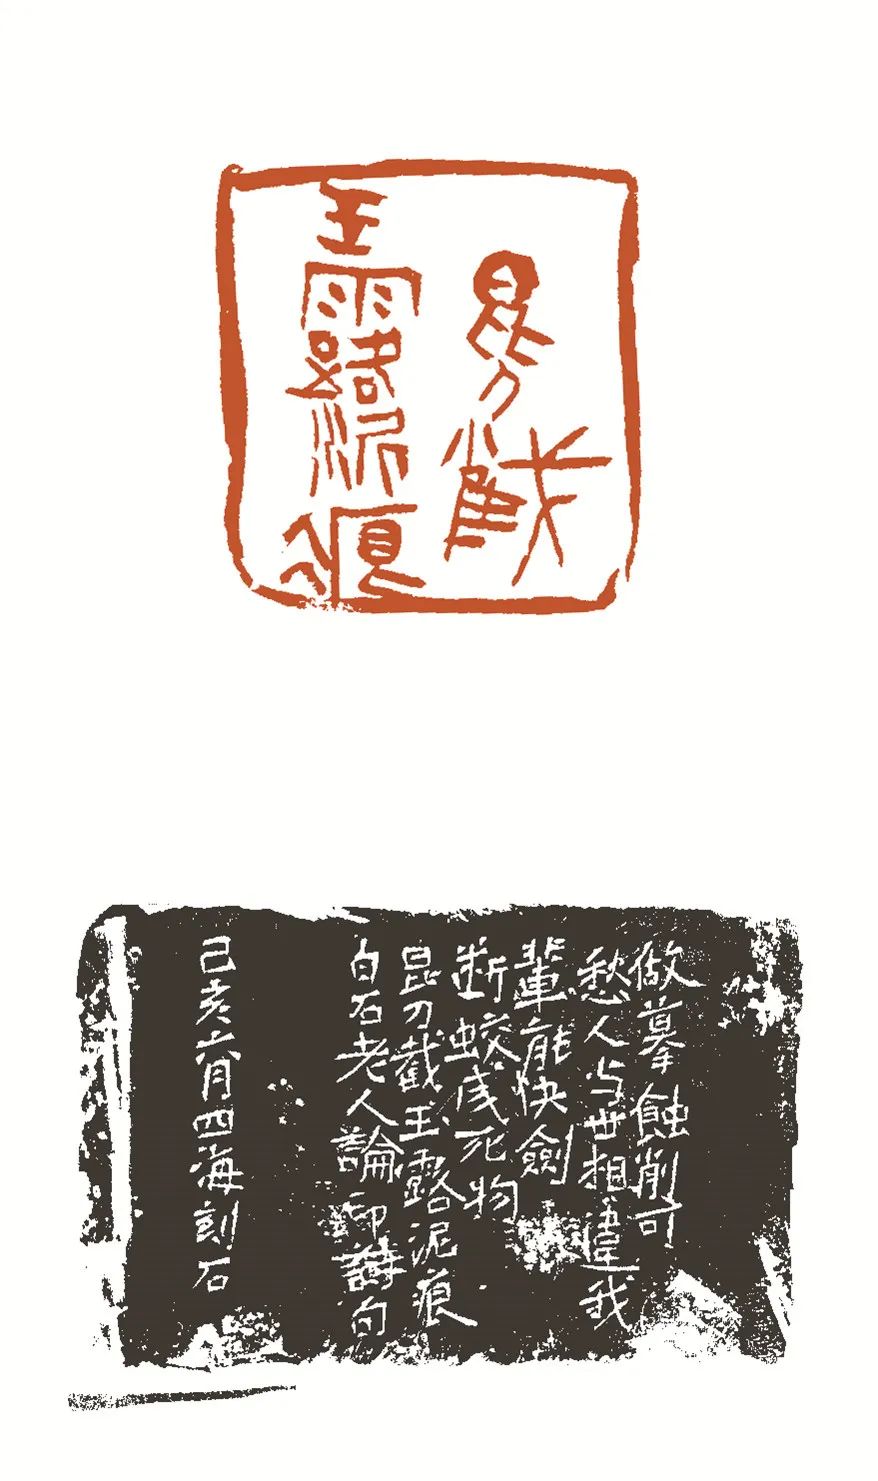 昆刀截
玉露泥痕
做摹蝕削可
愁人与世相違我
輩能快劍
断蛟成死物
昆刀截玉露泥痕
白石老人論印詩句
己亥六月四海刻石